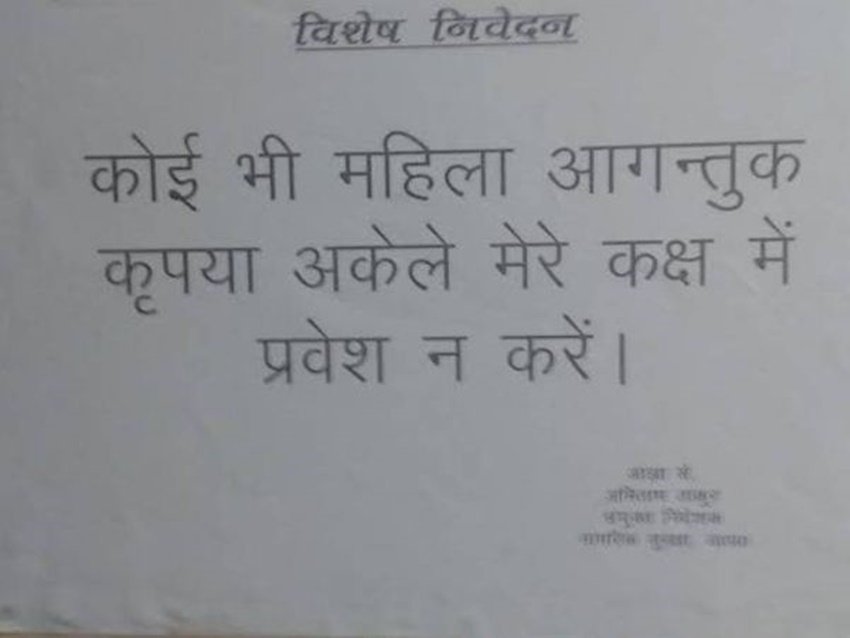 विशेष निवेदन
कोई भी महिला आगन्तुक
कृपया अकेले मेरे कक्ष में
प्रवेश न करें।
आज्ञा से,
अमिताभ ठाकुर
संयुक्त निदेशक
नागरिक सुरक्षा,